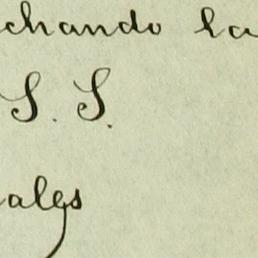 chando la
S. S.
algs